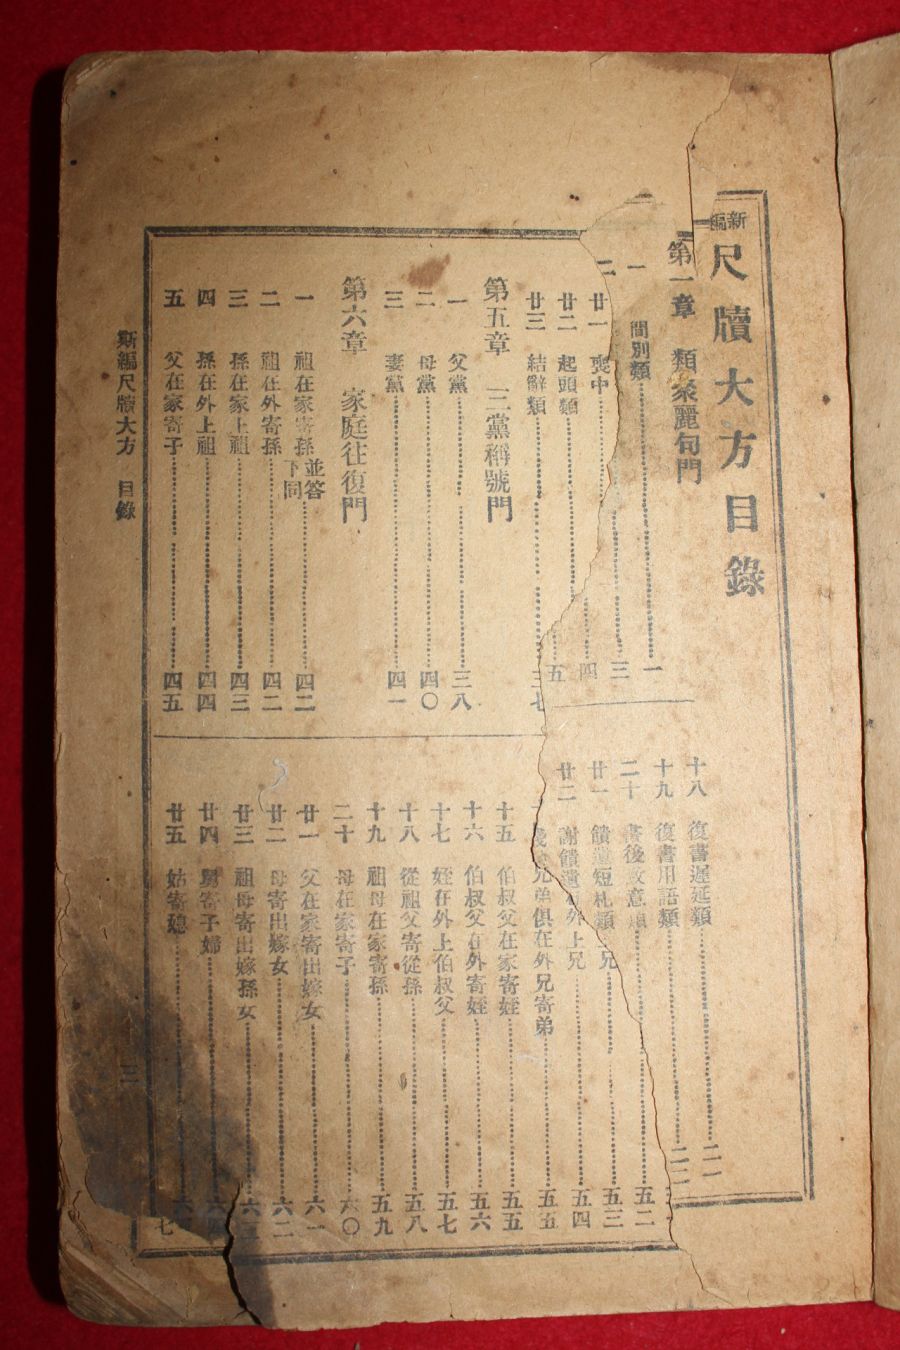 新編尺牘大方目錄
第一章 類彖麗句門
一 間別類 一
二 三
四
五
廿一 喪中
廿二 起頭類
廿三 結辭類 三七
第五章 三黨稱號門
一 父黨 三八
二 母黨 四〇
三 妻黨 四一
第六章 家庭往復門
一 祖在家寄孫 並答下同 四二
二 祖在外寄孫 四二
三 孫在家上祖 四三
四 孫在外上祖 四四
五 父在家寄子 四五
十八 復書遲延類 二一
十九 復書用語類 二二
二十 書後致意類
廿一 饋遺短札類
廿二 謝饋遺
兄 五三
在外上兄 五四
兄弟俱在外兄寄弟 五五
十五 伯叔父在家寄姪 五五
十六 伯叔父在外寄姪 五六
十七 姪在外上伯叔父 五七
十八 從祖父寄從孫 五八
十九 祖母在家寄孫 五九
二十 母在家寄子 六〇
廿一 父在家寄出嫁女 六一
廿二 母寄出嫁女 六二
廿三 祖母寄出嫁孫女 六三
廿四 舅寄子婦 六
廿五 姑寄媳 六
斯編尺牘大方 目錄
三